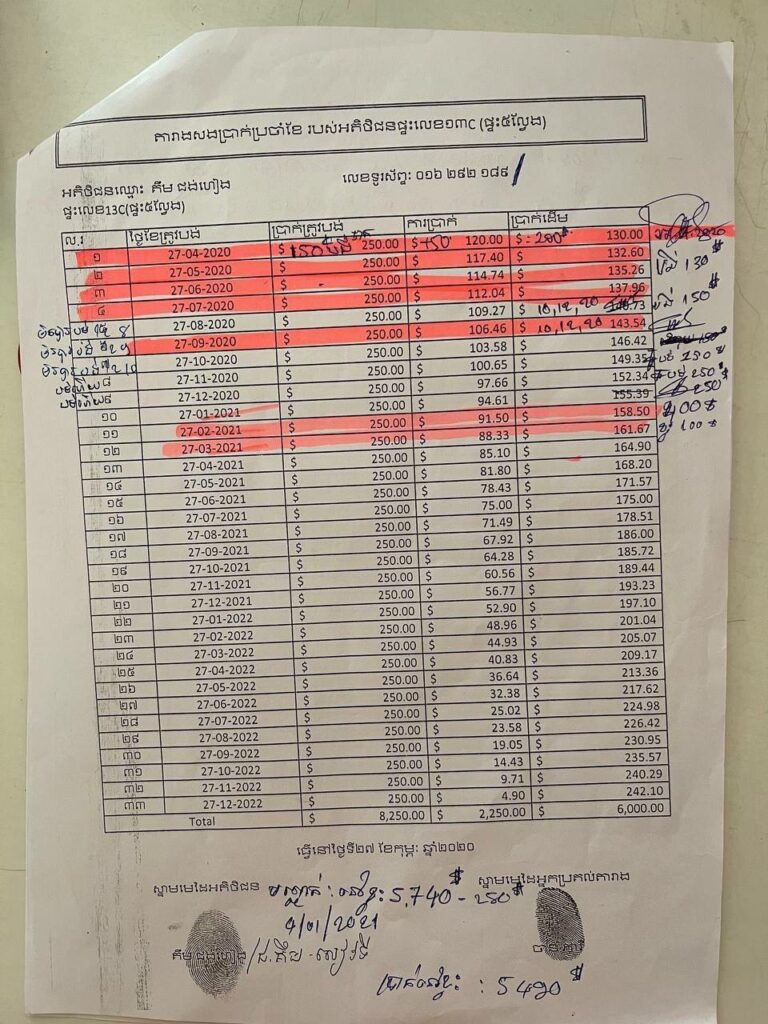 តារាងសងប្រាក់ប្រចាំខែ របស់អតិថិជនផ្ទះលេខ១៣C (ផ្ទះ៥ល្វែង)
អតិថិជនឈ្មោះ គីម ជង់ហៀង លេខទូរស័ព្ទ: ០១៦ ២៩២ ១៨៩
ផ្ទះលេខ13C(ផ្ទះ៥ល្វែង)
ល.រ ថ្ងៃខែត្រូវបង់ ប្រាក់ត្រូវបង់ ការប្រាក់ ប្រាក់ដើម
១ 27-04-2020 $ 150 250.00 $ 150 120.00 $ 130.00
២ 27-05-2020 $ 250.00 $ 117.40 $ 132.60
៣ 27-06-2020 $ 250.00 $ 114.74 $ 135.26 130$
៤ 27-07-2020 $ 250.00 $ 112.04 $ 137.96
27-08-2020 $ 250.00 $ 109.27 $ 10,12,20 150$
27-09-2020 $ 250.00 $ 106.46 $ 10,12,20 143.54
27-10-2020 $ 250.00 $ 103.58 $ 146.42
៨ 27-11-2020 $ 250.00 $ 100.65 $ 149.35
៩ 27-12-2020 $ 250.00 $ 97.66 $ 152.34 250$
១០ 27-01-2021 $ 250.00 $ 94.61 $ 155.39 250$
១១ 27-02-2021 $ 250.00 $ 91.50 $ 158.50
១២ 27-03-2021 $ 250.00 $ 88.33 $ 161.67 100$
១៣ 27-04-2021 $ 250.00 $ 85.10 $ 164.90
១៤ 27-05-2021 $ 250.00 $ 81.80 $ 168.20
១៥ 27-06-2021 $ 250.00 $ 78.43 $ 171.57
១៦ 27-07-2021 $ 250.00 $ 75.00 $ 175.00
១៧ 27-08-2021 $ 250.00 $ 71.49 $ 178.51
១៨ 27-09-2021 $ 250.00 $ 67.92 $ 186.00
១៩ 27-10-2021 $ 250.00 $ 64.28 $ 185.72
២០ 27-11-2021 $ 250.00 $ 60.56 $ 189.44
២១ 27-12-2021 $ 250.00 $ 56.77 $ 193.23
២២ 27-01-2022 $ 250.00 $ 52.90 $ 197.10
២៣ 27-02-2022 $ 250.00 $ 48.96 $ 201.04
២៤ 27-03-2022 $ 250.00 $ 44.93 $ 205.07
២៥ 27-04-2022 $ 250.00 $ 40.83 $ 209.17
២៦ 27-05-2022 $ 250.00 $ 36.64 $ 213.36
២៧ 27-06-2022 $ 250.00 $ 32.38 $ 217.62
២៨ 27-07-2022 $ 250.00 $ 25.02 $ 224.98
២៩ 27-08-2022 $ 250.00 $ 23.58 $ 226.42
៣០ 27-09-2022 $ 250.00 $ 19.05 $ 230.95
៣១ 27-10-2022 $ 250.00 $ 14.43 $ 235.57
៣២ 27-11-2022 $ 250.00 $ 9.71 $ 240.29
៣៣ 27-12-2022 $ 250.00 $ 4.90 $ 242.10
Total $ 8,250.00 $ 2,250.00 $ 6,000.00
ធ្វើនៅថ្ងៃទី២៧ ខែកុម្ភៈ ឆ្នាំ២០២០
ស្នាមមេដៃអតិថិជន 5,740$ - 250$ ស្នាមមេដៃអ្នកប្រគល់តារាង
4/01/2021
គីម ជង់ហៀង
ប្រាក់នៅខ្វះ : 5490$